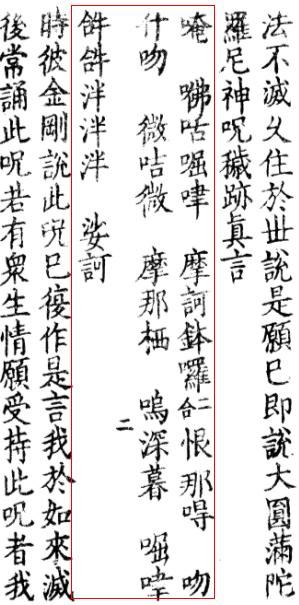 法不滅久住於世說是願已即說大圓滿陀
羅尼神呪穢跡真言
唵 㗶咶啒㖶 摩訶鉢囉二合恨那㖶 吻
什吻 微咭微 摩那栖 嗚深暮 啒㖶二
𤙖𤙖泮泮泮 娑訶
時彼金剛說此呪已復作是言我於如來滅
後常誦此呪若有眾生情願受持此呪者我